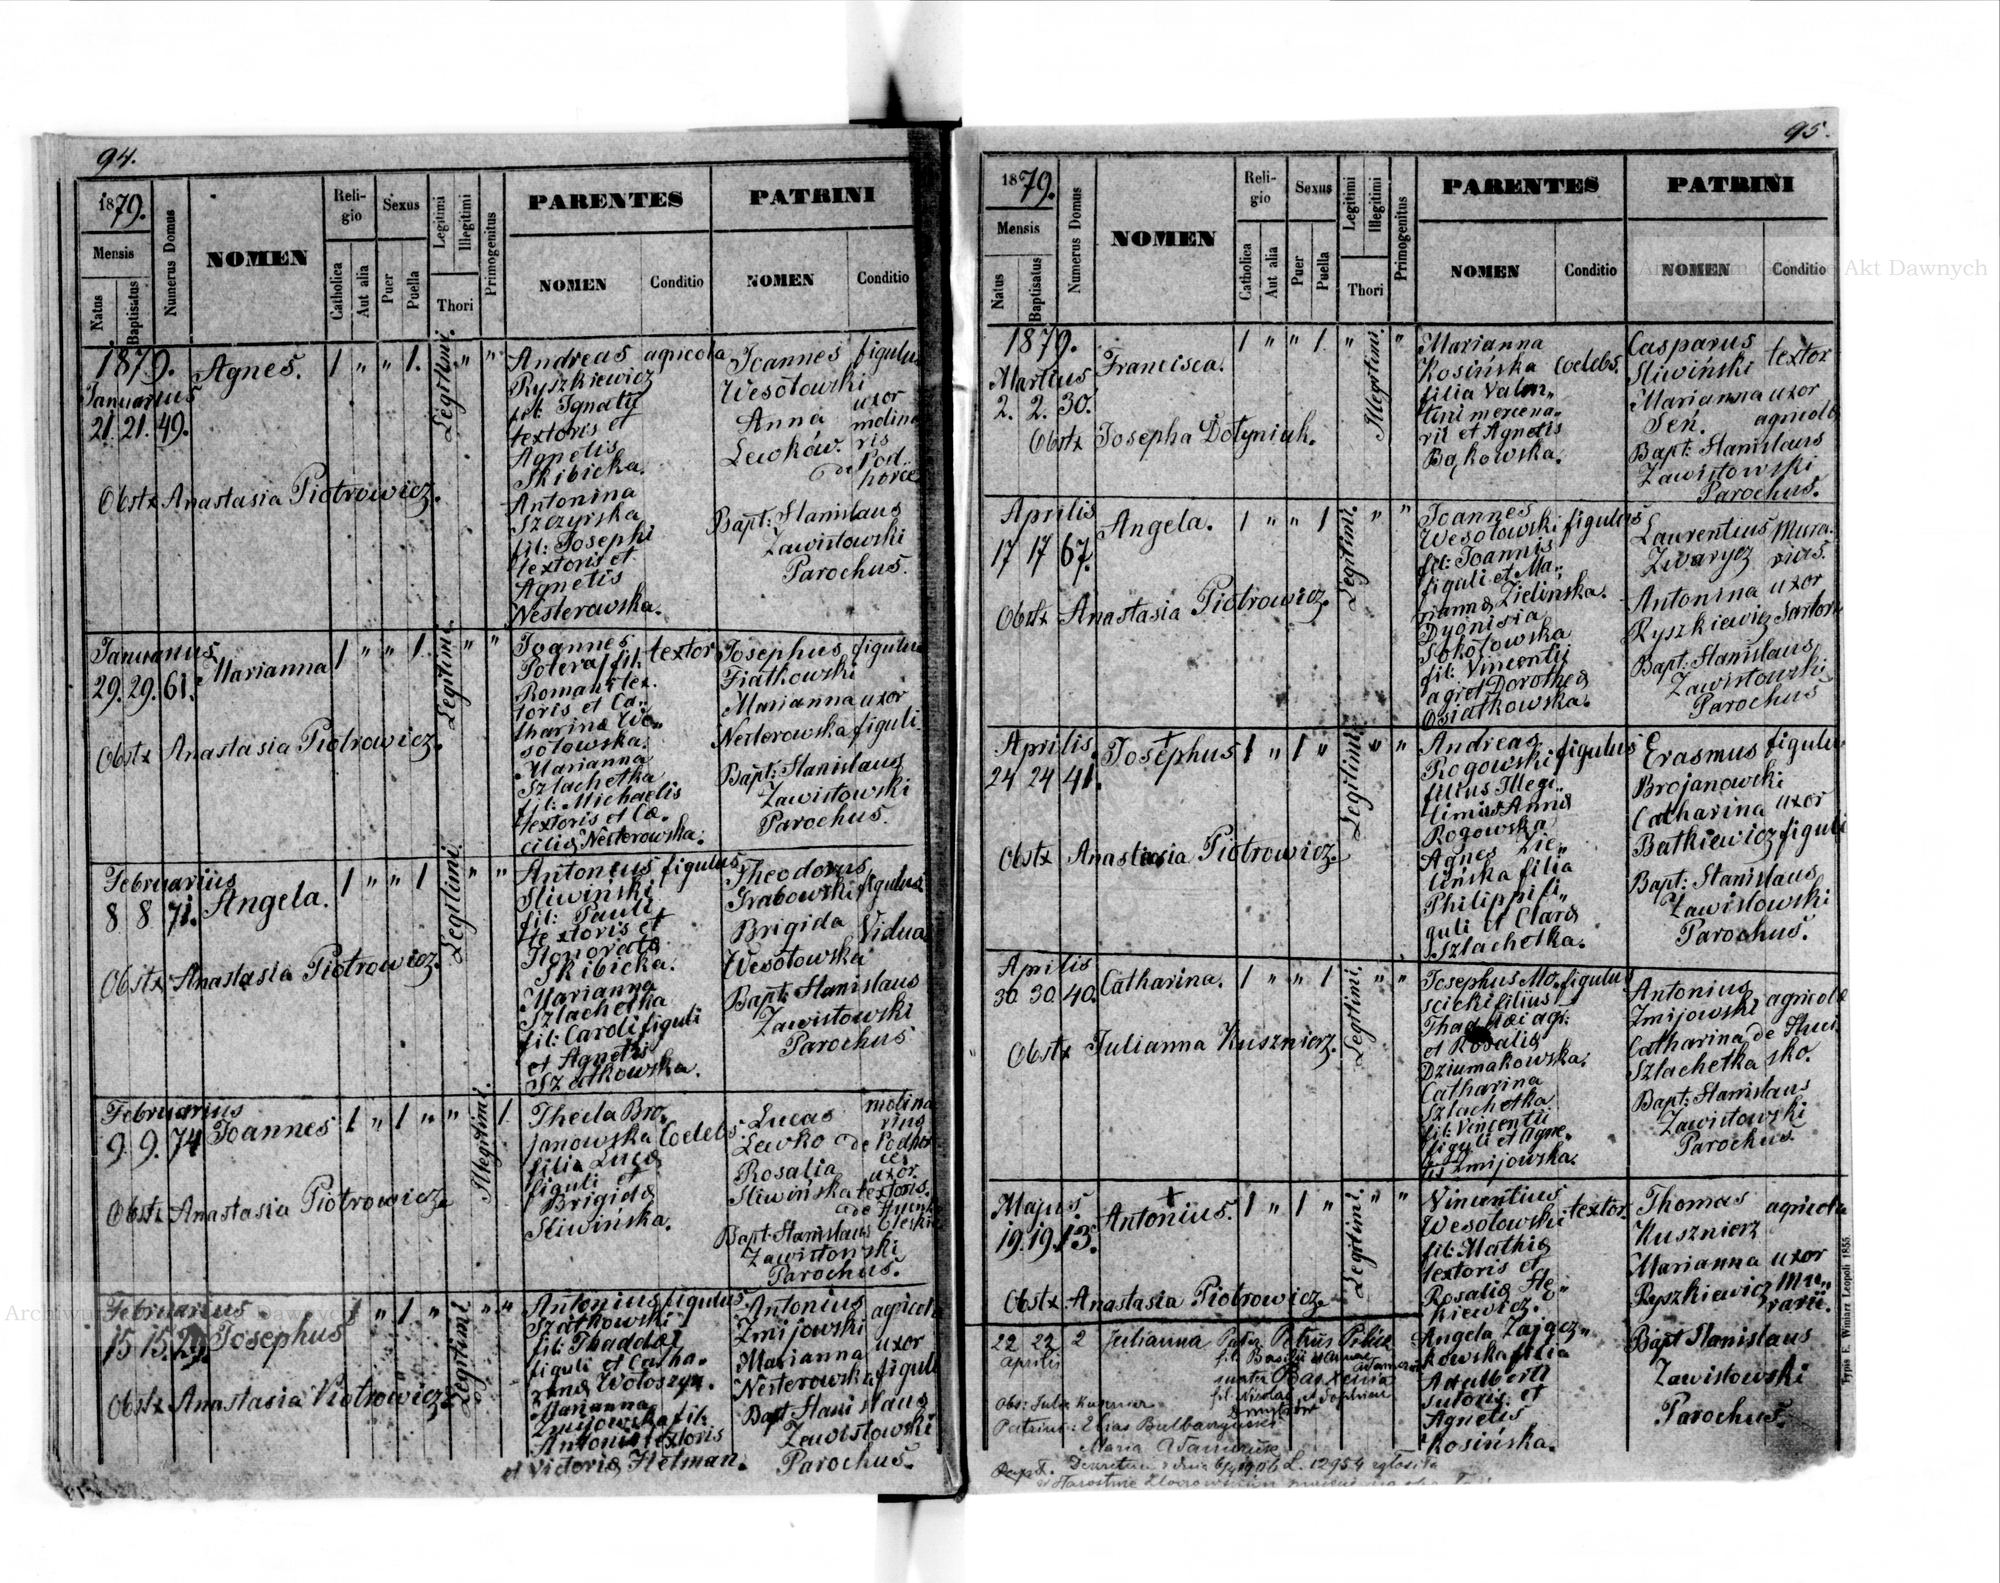 94.
1879.
Mensis
Natus
Baptisatus
Numerus Domus
NOMEN
Religio
Catholica
Aut alia
Sexus
Puer
Puella
Legitimi
Illegitimi
Thori
Primogenitus
PARENTES
NOMEN
Conditio
PATRINI
NOMEN
Conditio
1879.
Januarius
21. 21. 49.
Agnes.
1 " " 1.
Legitimi.
" "
Andreas agricola
Ryszkiewicz
fil: Ignatii
textoris et
Agnetis
Skibicka.
Antonina
Szczyrska
fil: Josephi
textoris et
Agnetis
Nesterowska.
Joannes figulus
Wesołowski
Anna uxor
Lewków. molina
ris
de Pod..
horce
Bapt: Stanislaus
Zawistowski
Parochus.
Obstx Anastasia Piotrowicz.
Januarius
29. 29. 61.
Marianna
1 " " 1.
Legitimi.
" "
Joannes textor
Potera fil.
Romani tex.
toris et Ca..
tharinæ We..
sołowska.
Marianna
Szlachetka
fil: Michaelis
textoris et Cæ.
ciliæ Nesterowska.
Josephus figulus
Fiatkowski
Marianna uxor
Nesterowska figuli.
Bapt: Stanislaus
Zawistowski
Parochus.
Obstx Anastasia Piotrowicz.
Februariüs
8 8 71.
Angela.
1 " " 1
Legitimi.
" "
Antonius figulus
Sliwiński
fil: Pauli
textoris et
Honoratæ
Skibicka.
Marianna
Szlachetka
fil: Caroli figuli
et Agnetis
Szatkowska.
Theodorus
Grabowski figulus
Brigida Vidua
Wesołowska
Bapt: Stanislaus
Zawistowski
Parochus
Obstx Anastasia Piotrowicz.
Februarius
9. 9. 74
Joannes
1 " 1 " "
Illegitimi.
1
Thecla Bro..
janowska Coelebs.
filia Lucæ
figuli et
Brigidæ
Sliwińska.
Lucas molina
rius
Lewko de Podhor
ce
Rosalia uxor.
Sliwińska textoris.
Bapt: Stanislaus
Zawistowski
Parochus.
Obstx Anastasia Piotrowicz
Februarius
15. 15.
Josephus
1 " 1 "
Legitimi
" "
Antonius figulus
Szatkowski
fil: Thaddæi
figuli et Catha..
rinæ Wołoszyn.
Marianna
Zmijowska fil.
Antonii textoris
et Victoriæ Hetman.
Antonius agricola
Zmijowski
Marianna uxor
Nesterowska figuli
Bapt Stanislaus
Zawistowski
Parochus.
Obstx Anastasia Piotrowicz
95.
1879.
Mensis
Natus
Baptisatus
Numerus Domus
NOMEN
Religio
Catholica
Aut alia
Sexus
Puer
Puella
Legitimi
Illegitimi
Thori
Primogenitus
PARENTES
NOMEN
Conditio
PATRINI
NOMEN
Conditio
1879.
Martius
2. 2. 30.
Francisca.
1 " " 1 "
Illegitimi.
"
Marianna
Kosińska Coelebs.
filia Valen..
tini mercena..
rii et Agnetis
Bąkowska.
Casparus
Sliwiński textor
Marianna uxor
Seń. agricolæ
Bapt: Stanislaus
Zawistowski
Parochus.
Obstx Josepha Dotyniuk.
Aprilis
17 17 67.
Angela.
1 " " 1
Legitimi.
" "
Joannes
Wesołowski figulus
fil: Joannis
figuli et Ma..
riannæ Zielinska.
Dyonisia
Sokołowska
fil: Vincentii
agr et Dorotheæ
Osiatkowska.
Laurentius Mura.
Zwarycz rius.
Antonina uxor
Ryszkiewicz Sartoris
Bapt: Stanislaus
Zawistowski
Parochus
Obstx Anastasia Piotrowicz.
Aprilis
24 24 41.
Josephus
1 " 1 "
Legitimi.
" "
Andreas
Rogowski figulus
filius Illegi..
timus Annæ
Rogowska
Agnes Zie..
lińska filia
Philippi fi..
guli et Claræ
Szlachetka.
Erasmus figulus
Brojanowski
Catharina uxor
Batkiewicz figuli
Bapt: Stanislaus
Zawistowski
Parochus.
Obstx Anastasia Piotrowicz.
Aprilis
30 30 40.
Catharina.
1 " " 1
Legitimi.
" "
Josephus Mo. figulus
scicki filius
Thaddæi agr:
et Rosaliæ
Dziumakowska.
Catharina
Szlachetka
fil: Vincentii
figuli et Agne..
tis Zmijowska.
Antonius
Zmijowski agricola
Catharina de Huci
Szlachetka sko.
Bapt: Stanislaus
Zawistowski
Parochus.
Obstx Julianna Kusznierz.
Majus.
19. 19. 13.
Antonius.
1 " 1 "
Legitimi.
" "
Vincentius
Wesołowski textor.
fil: Mathiæ
textoris et
Rosaliæ Ste..
kiewicz.
Thomas agricola
Kusznierz
Marianna uxor
Ryszkiewicz Mu..
rarii.
Obstx Anastasia Piotrowicz.
22 22 2 Julianna
Aprilis
Pater Petrus
fil. Basilii et Annae
mater
fil. Nicolai et
Angela Zajacz..
kowska filia
Adalberti
sutoris et
Agnetis
Kosińska.
Bapt Stanislaus
Zawistowski
Parochus.
Patrini: Elias
Maria
L. 12954
Typis E. Winiarz Leopoli 1855.
Akt Dawnych